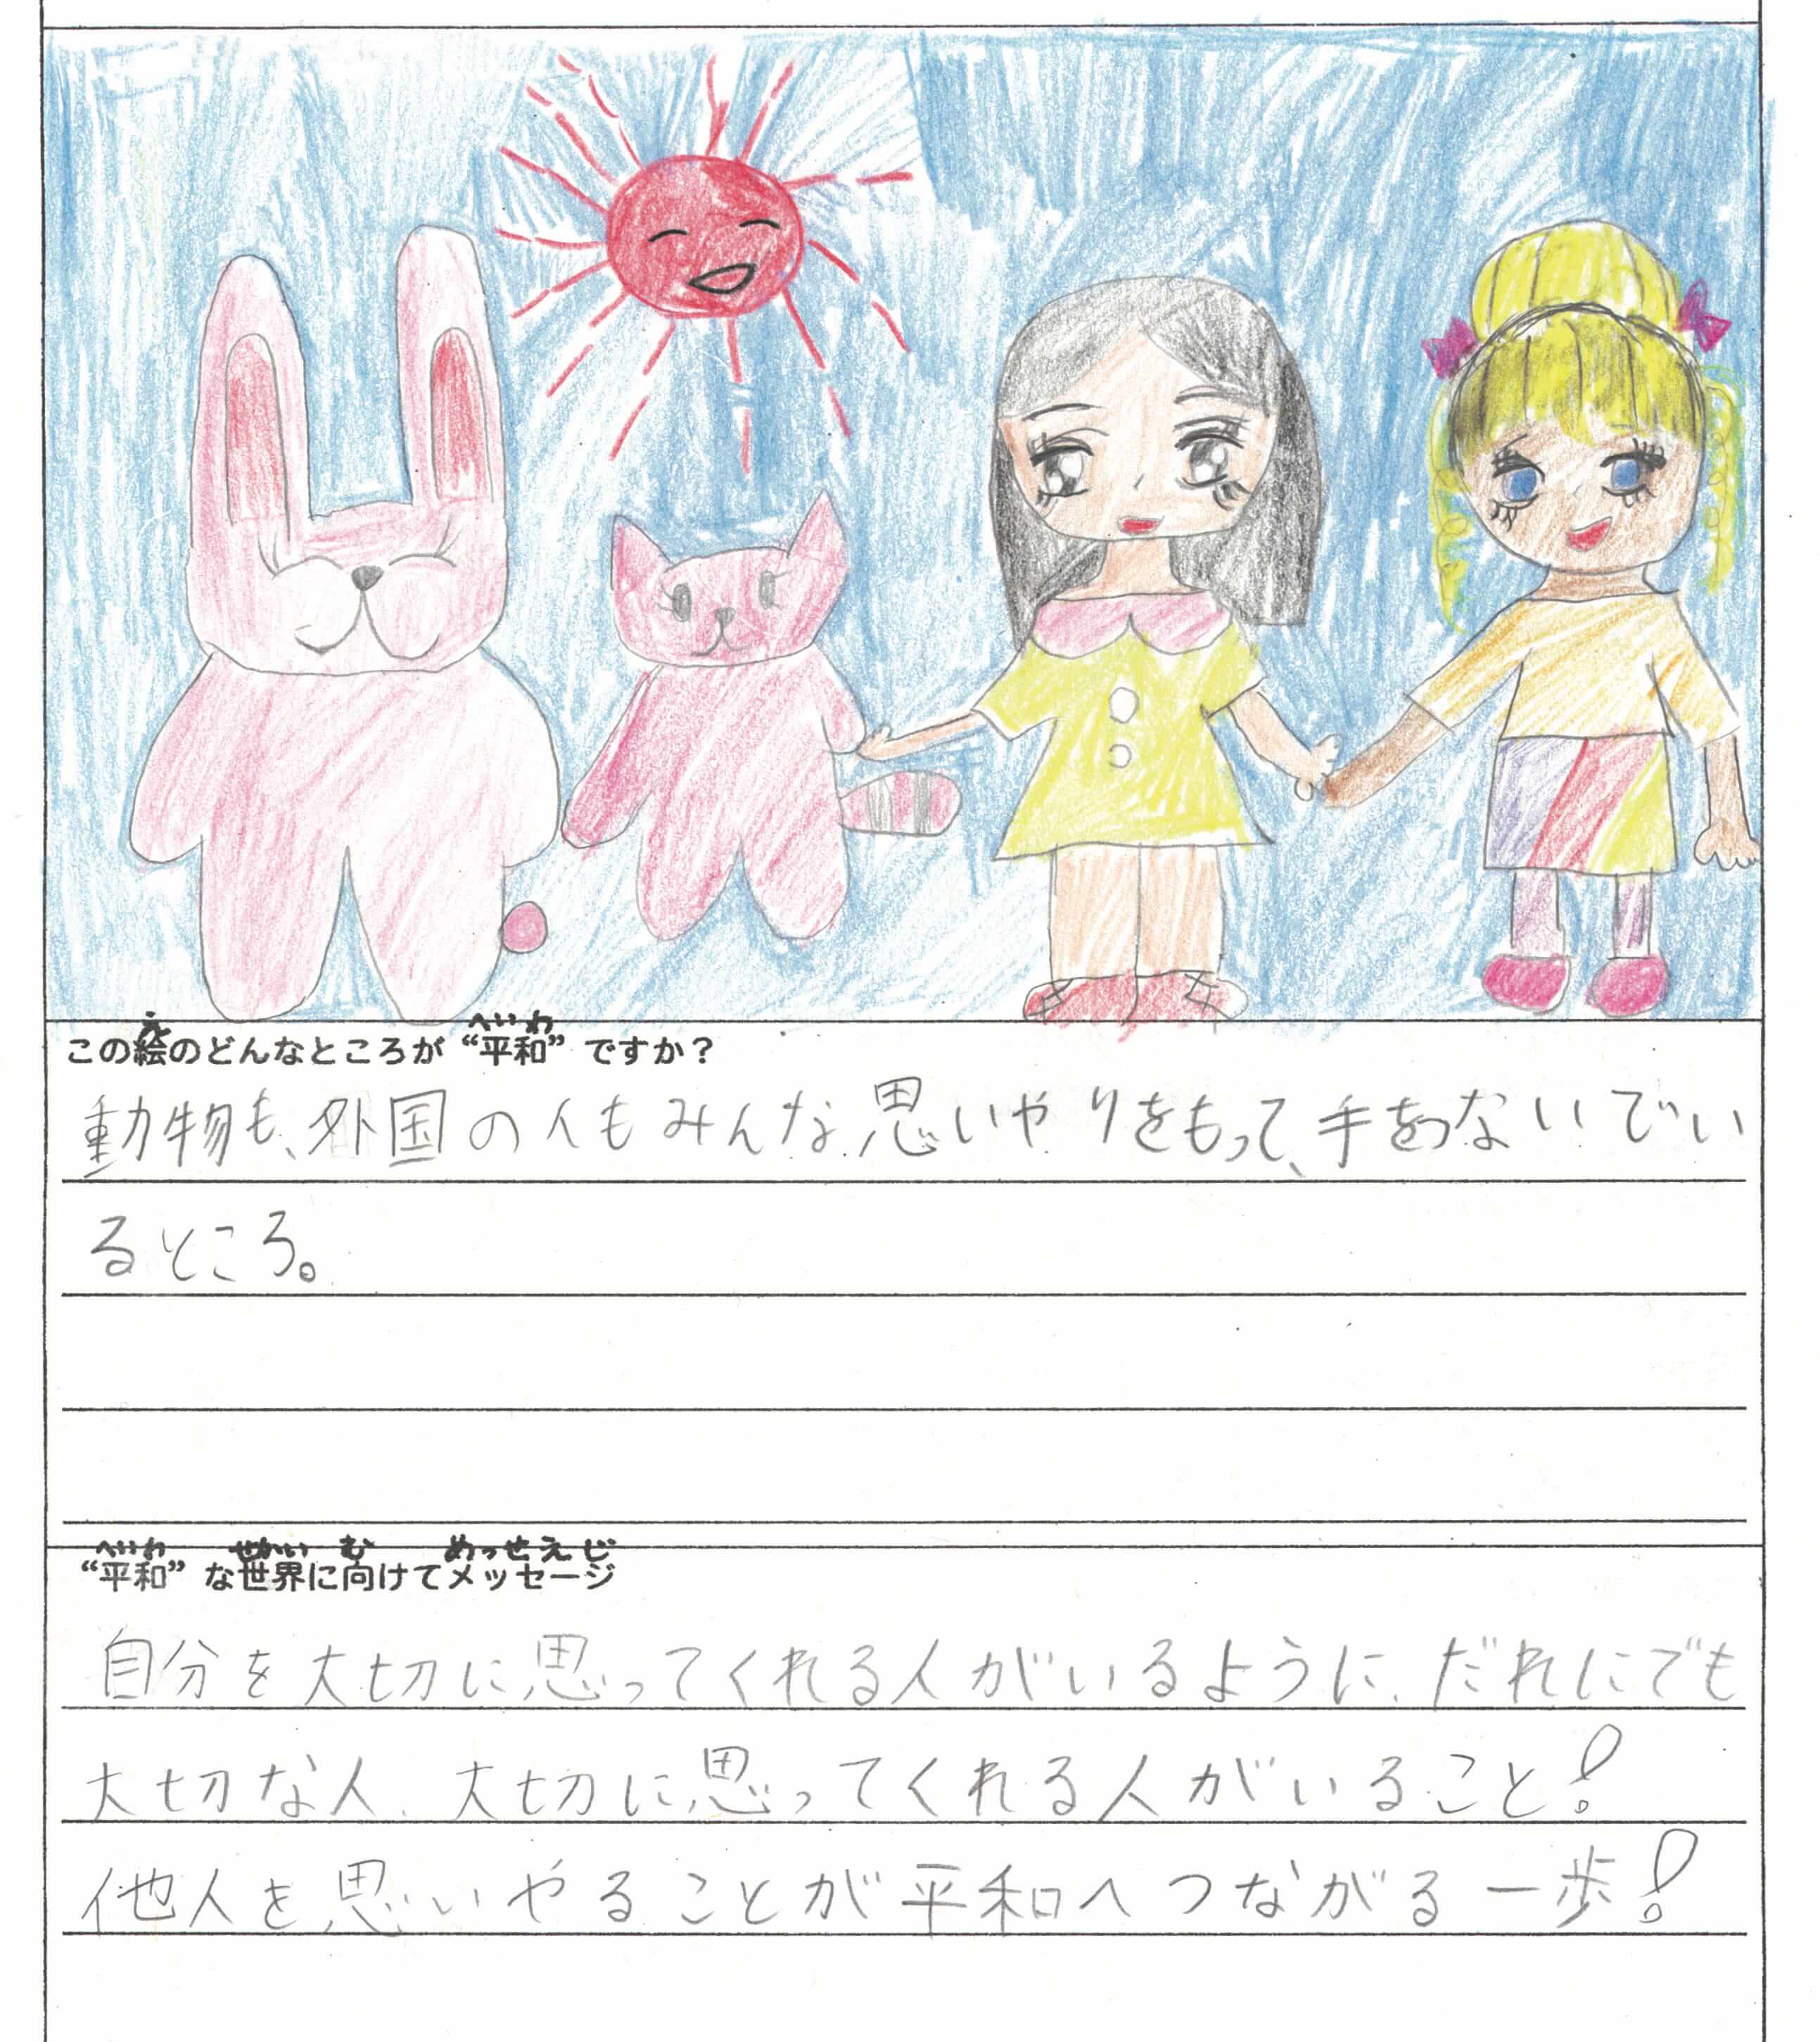 この絵のどんなところが“平和”ですか？
動物も、外国の人もみんな、思いやりをもって、手をつないでい
るところ。
“平和”な世界に向けてメッセージ
自分を大切に思ってくれる人がいるように、だれにでも
大切な人、大切に思ってくれる人がいること!
他人を思いやることが平和へつながる一歩!